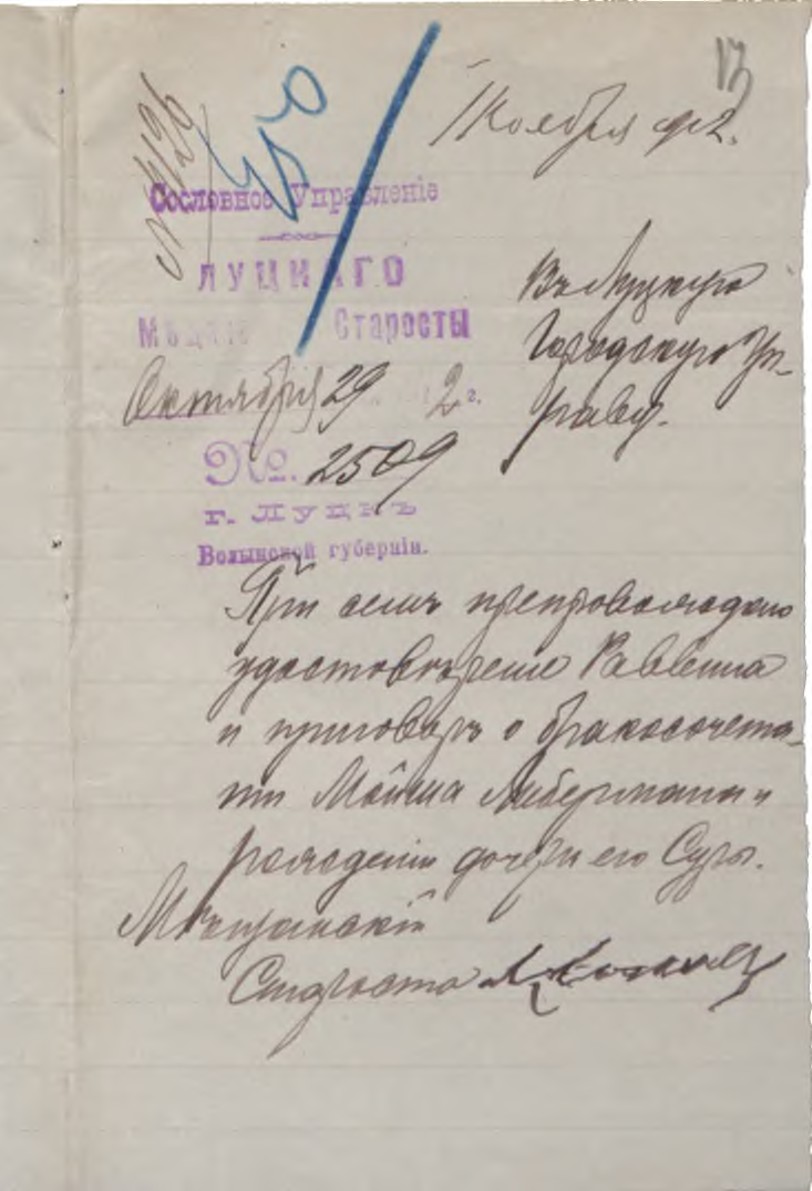 13
1 Ноября 912.
№ 4126
Сословное Управленіе
ЛУЦКАГО
Старосты
Октября 29 1912 г.
№. 2509
г. Луцкъ
Волынской губерніи.
Въ Луцкую
Городскую Уп-
раву.
При семъ препровождаю
удостовѣреніе Раввина
и приговоръ о бракосочета-
ніи Мойша Либермана и
рожденіи дочери его Суры.
Мѣщанскій
Староста